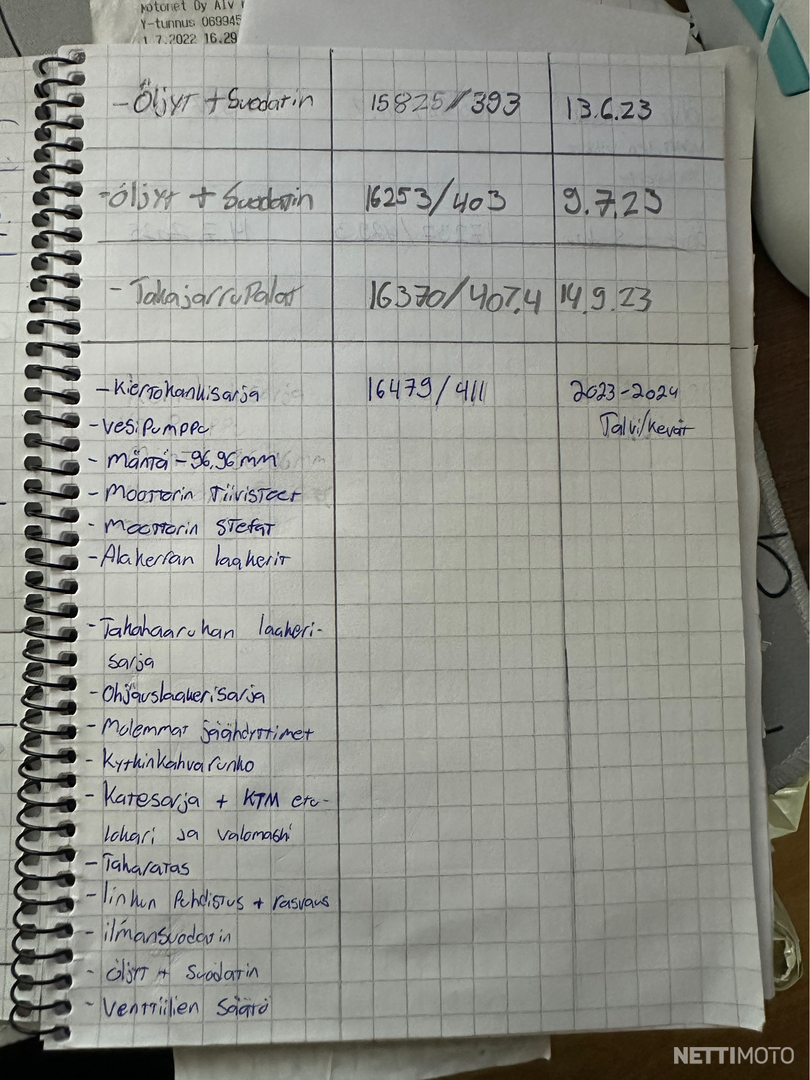 Motonet Oy Alv r
Y-tunnus 069945
1.7.2022 16.29
- Öljyt + Suodatin 15825/393 13.6.23
- Öljyt + Suodatin 16253/403 9.7.23
- TakajarruPalat 16370/407,4 14.9.23
- Kiertokankisarja 16479/411 2023-2024
- vesipumppu Talvi/kevät
- mäntä - 96,96 mm
- Moottorin Tiivisteet
- Moottorin Stefat
- Alakerran laakerit
- Takahaarukan laakeri-
sarja
- Ohjauslaakerisarja
- Molemmat jäähdyttimet
- Kytkinkahvarunko
- Katesarja + KTM etu-
lokari ja valomaski
- Takaratas
- linkun Puhdistus + rasvaus
- ilmansuodatin
- öljyt + Suodatin
- Venttiilien Säätö
NETTIMOTO